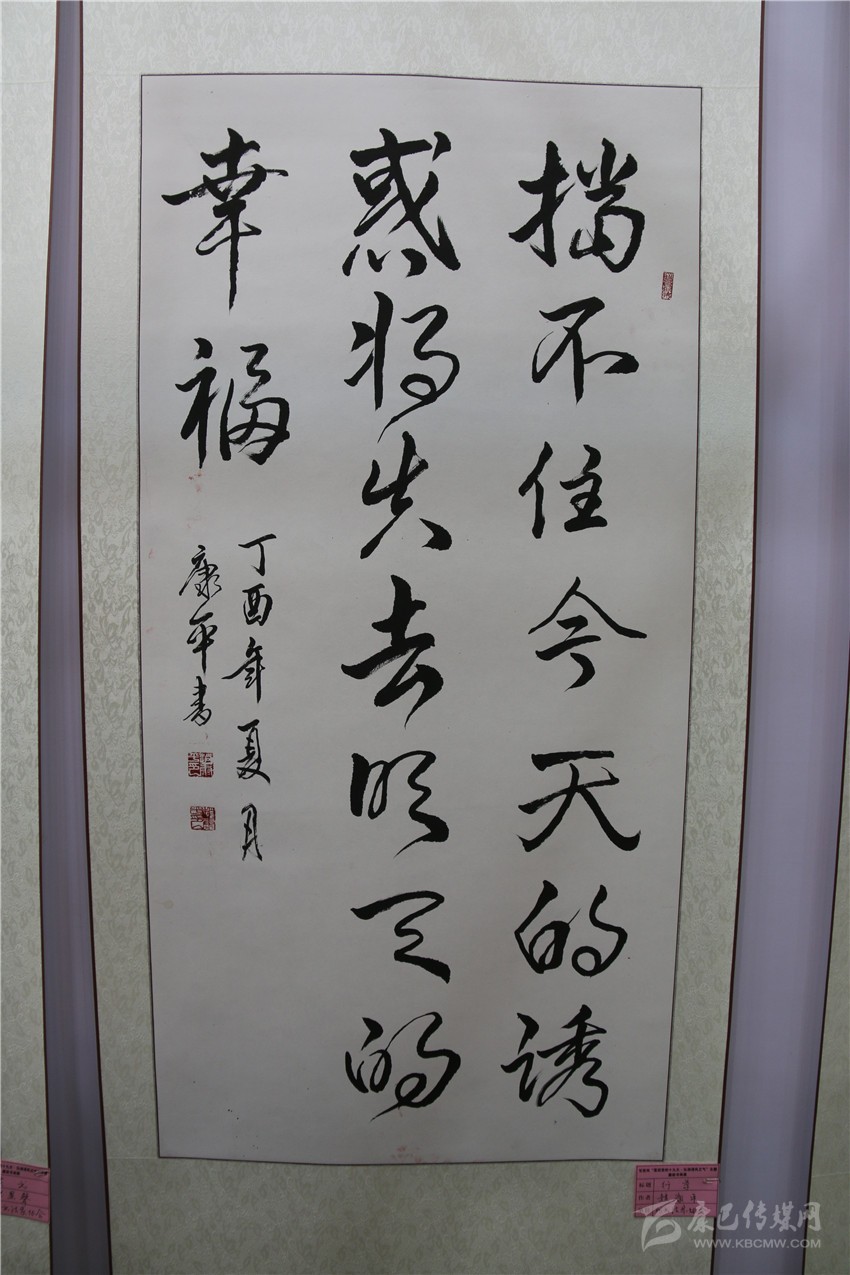 挡不住今天的诱
惑将失去明天的
幸福
丁酉年夏月
康平书
康巴传媒网
WWW.KBCMW.COM